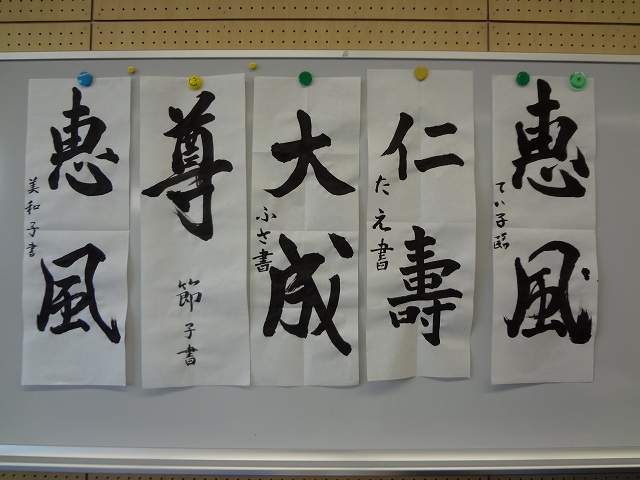 惠風
てい子臨
仁壽
たえ書
大成
ふさ書
尊
節子書
惠風
美和子書